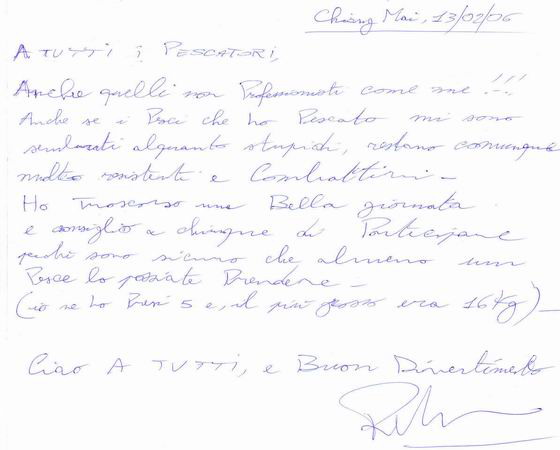 Chiang Mai, 13/02/06
A TUTTI i PESCATORI,
Anche quelli non Professionisti come me !!!
Anche se i Pesci che ho Pescato mi sono
sembrati alquanto stupidi, restano comunque
molto resistenti e Combattivi -
Ho Trascorso una Bella giornata
e consiglio a chiunque di Partecipare
perché sono sicuro che almeno un
Pesce lo possiate Prendere -
(io ne ho Presi 5 e, il più grosso era 16 Kg) -
Ciao A TUTTI, e Buon Divertimento